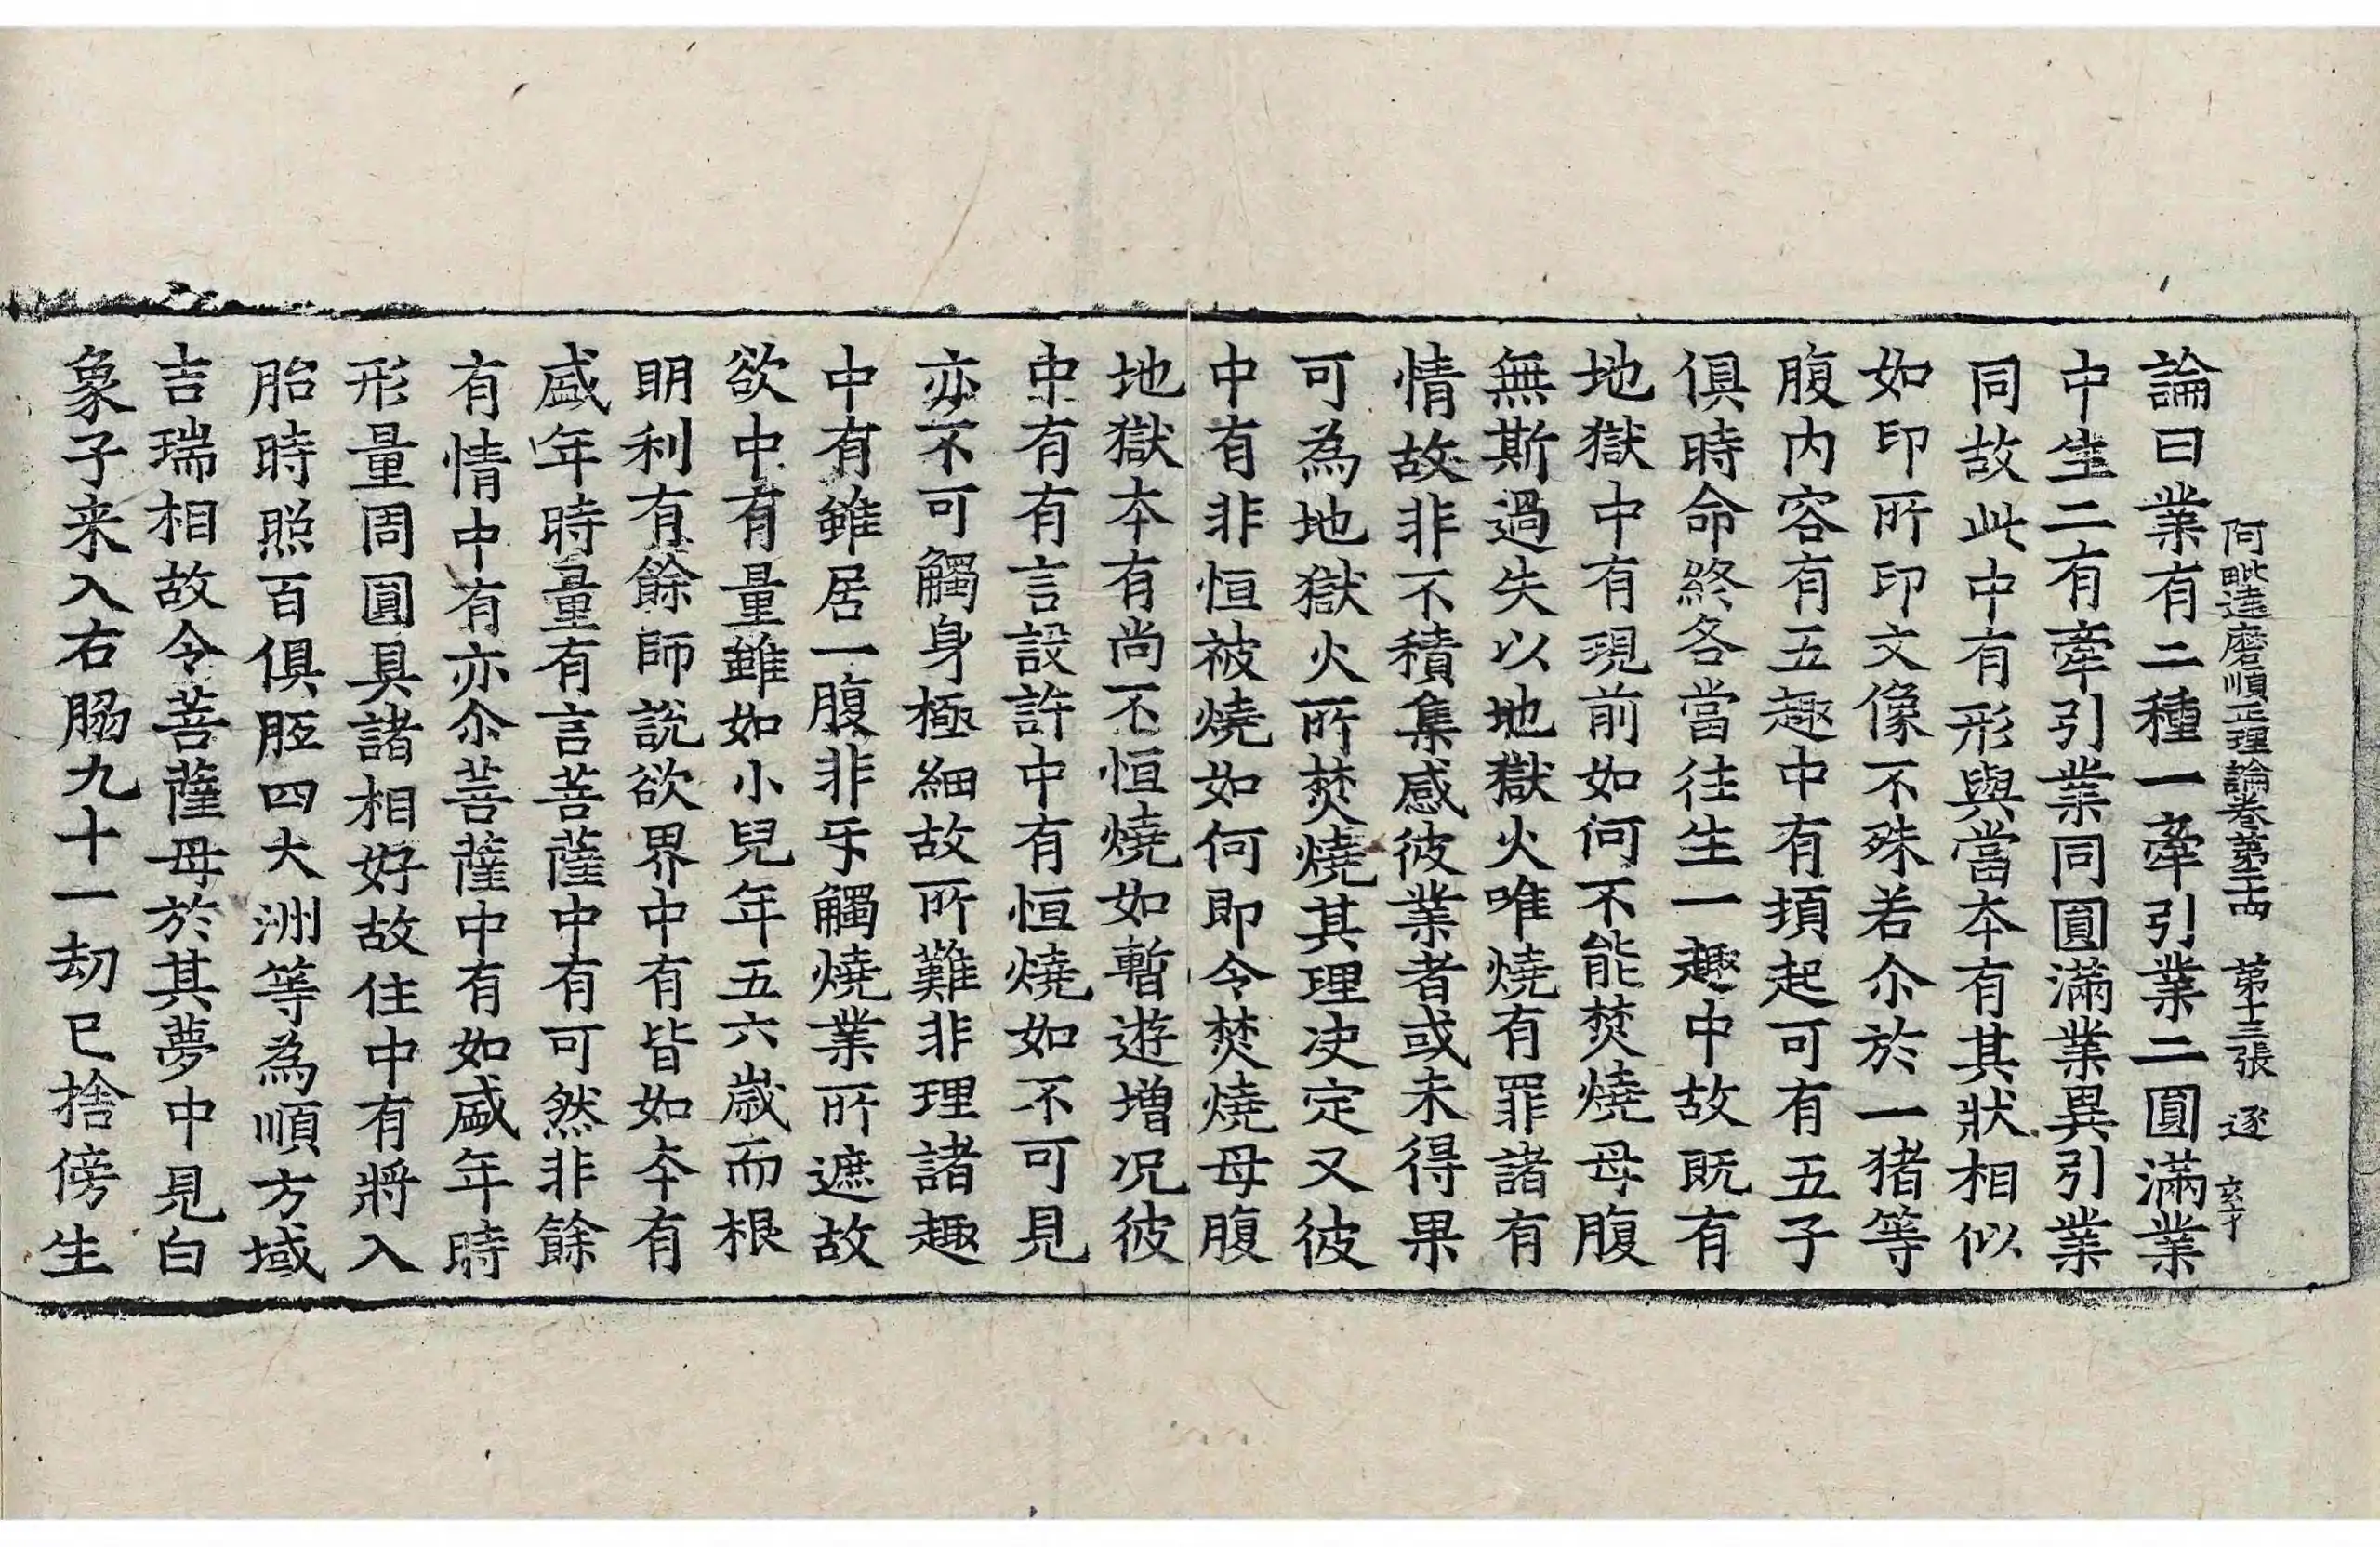 阿毗達磨順正理論卷第二十四 第十三張 逐
論曰業有二種一牽引業二圓滿業
中生二有牽引業同圓滿業異引業
同故此中有形與當本有其狀相似
如印所印文像不殊若尒於一猪等
腹内容有五趣中有頓起可有五子
俱時命終各當往生一趣中故既有
地獄中有現前如何不能焚燒母腹
無斯過失以地獄火唯燒有罪諸有
情故非不積集感彼業者或未得果
可為地獄火所焚燒其理决定又彼
中有非恒被燒如何即令焚燒母腹
地獄本有尚不恒燒如暫遊增况彼
中有有言設許中有恒燒如不可見
亦不可觸身極細故所難非理諸趣
中有雖居一腹非㸦觸燒業所遮故
欲中有量雖如小兒年五六歲而根
明利有餘師說欲界中有皆如本有
盛年時量有言菩薩中有可然非餘
有情中有亦尒菩薩中有如盛年時
形量周圓具諸相好故住中有將入
胎時照百俱胝四大洲等為順方域
吉瑞相故令菩薩母於其夢中見白
象子来入右脇九十一劫已捨傍生